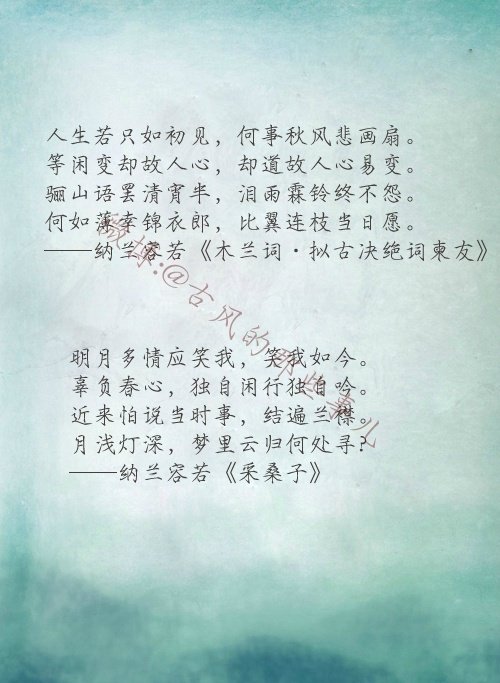 人生若只如初见，何事秋风悲画扇。
等闲变却故人心，却道故人心易变。
骊山语罢清宵半，泪雨霖铃终不怨。
何如薄幸锦衣郎，比翼连枝当日愿。
——纳兰容若《木兰词·拟古决绝词柬友》
明月多情应笑我，笑我如今。
辜负春心，独自闲行独自吟。
近来怕说当时事，结遍兰襟。
月浅灯深，梦里云归何处寻？
——纳兰容若《采桑子》
微博:@古风的那些事儿